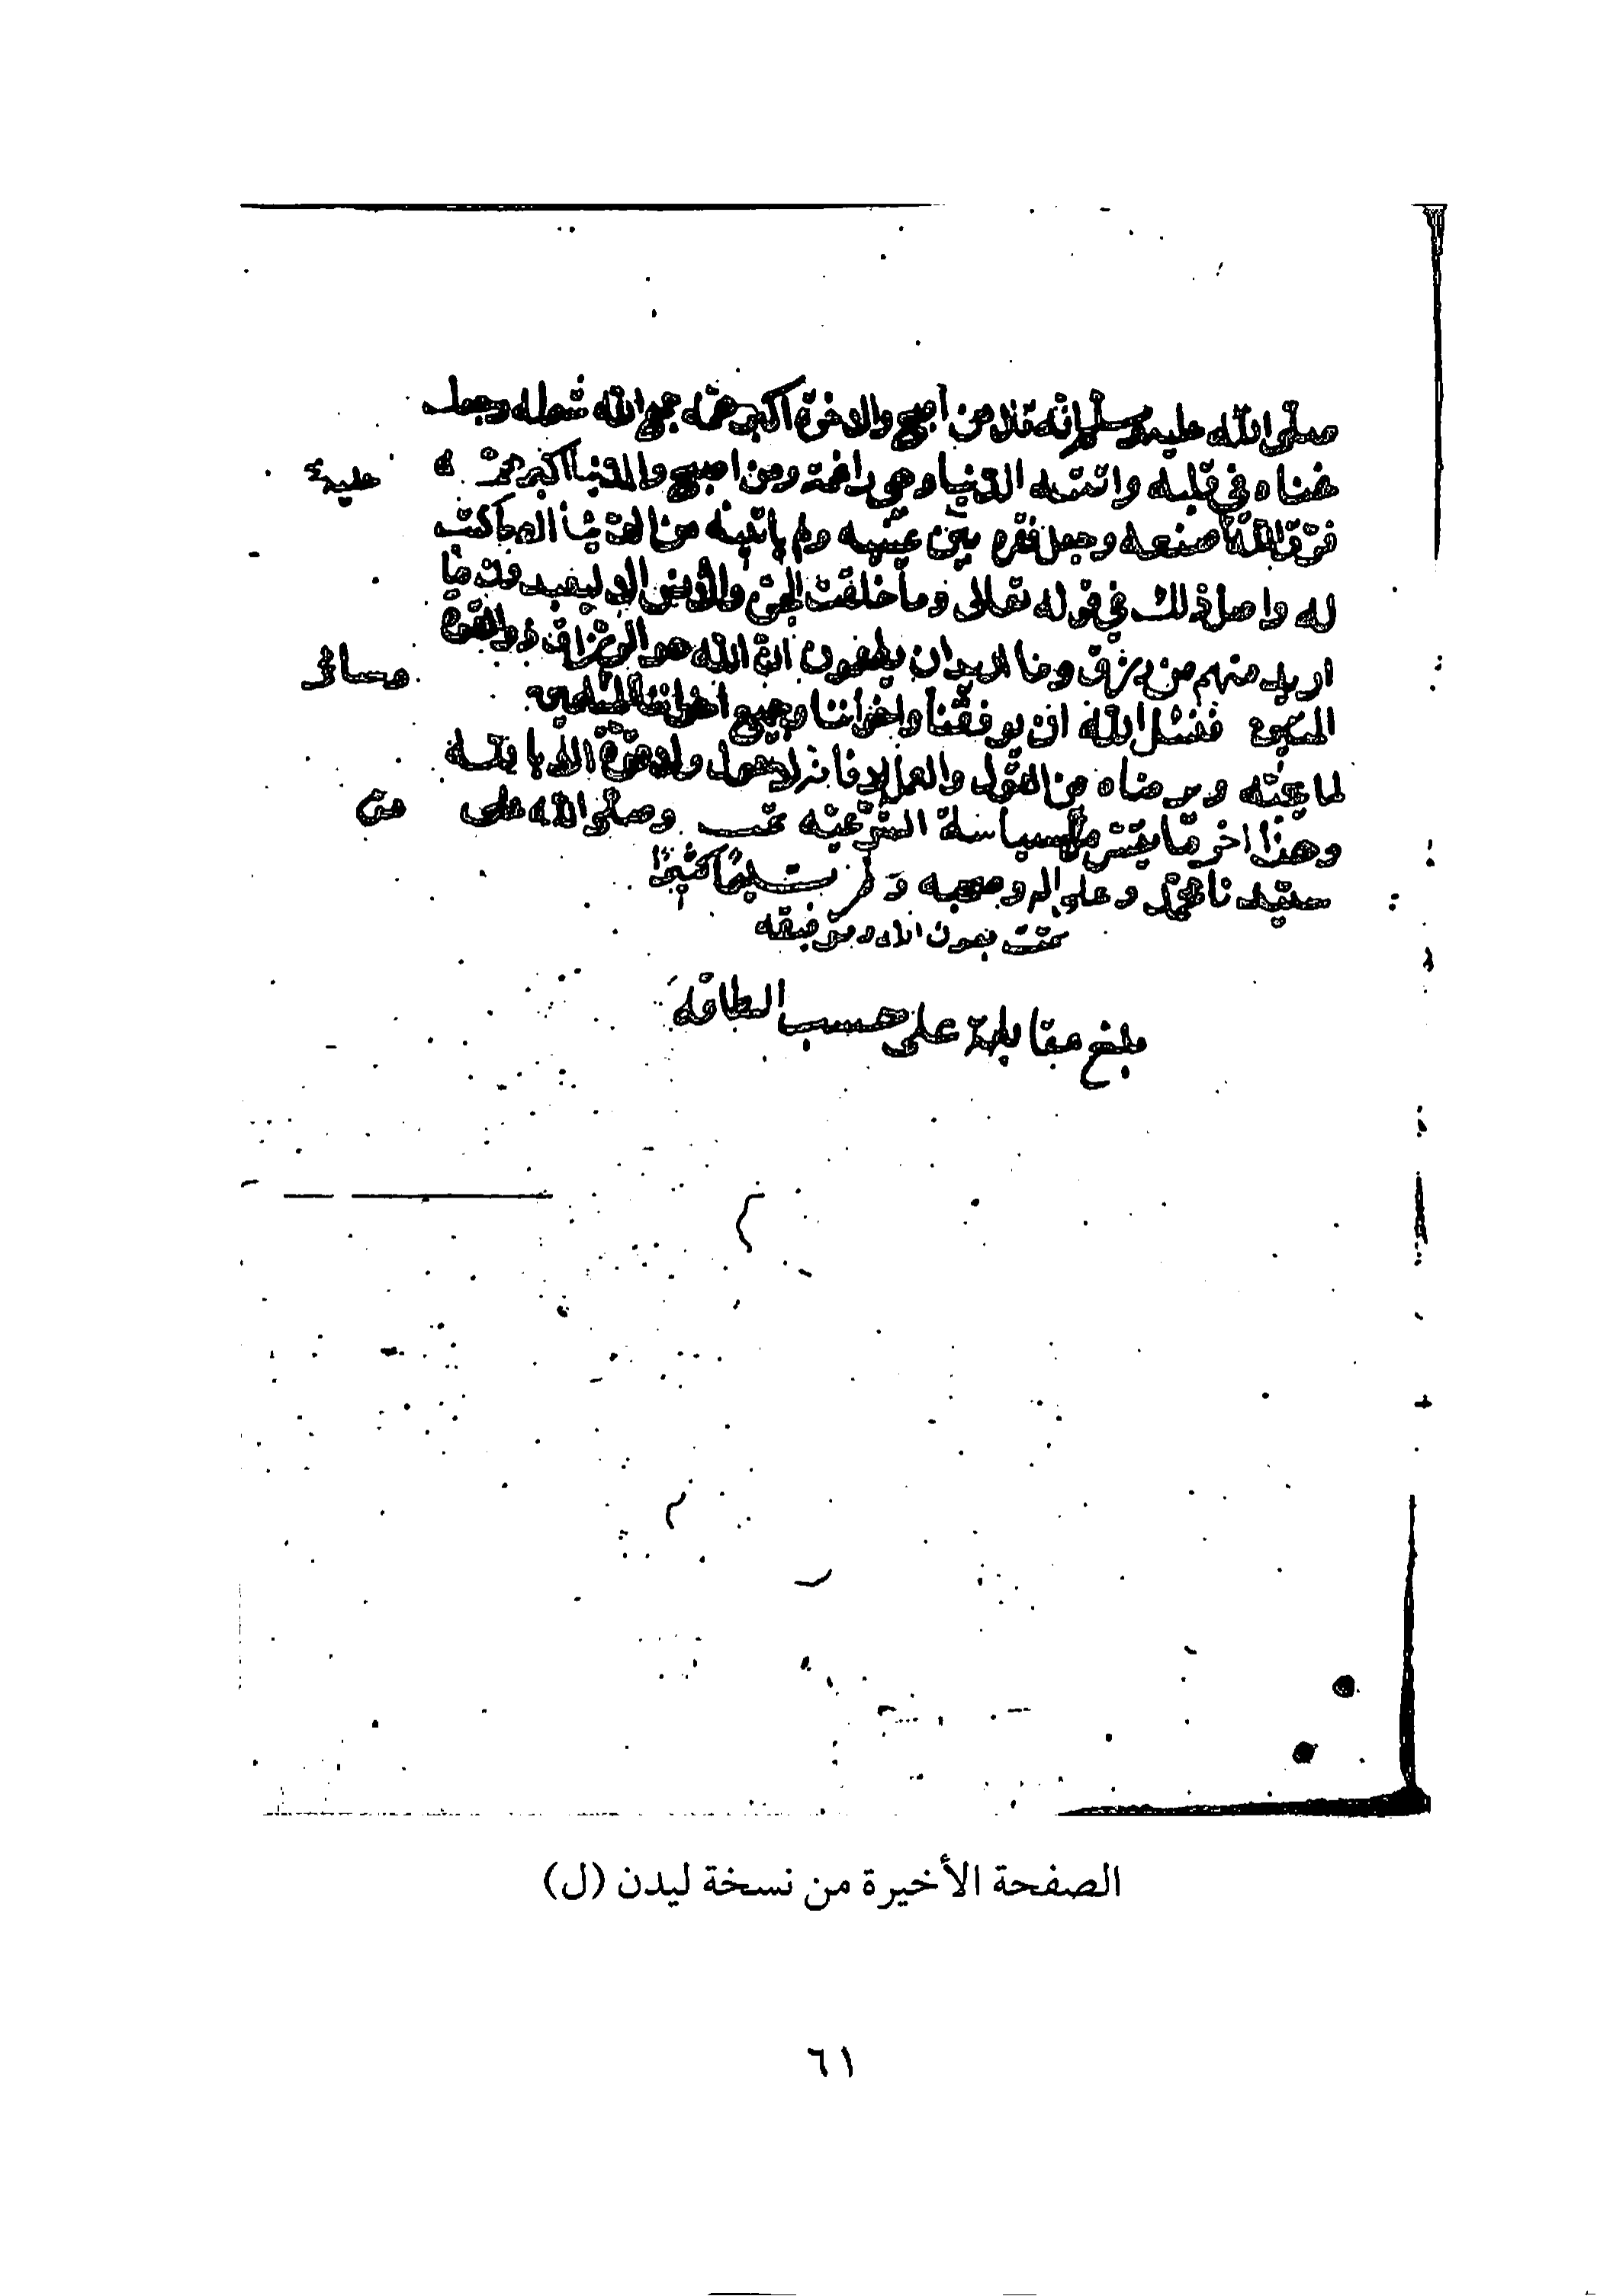 صلى الله عليه وسلم انه قال من اصبح والاخرة اكبر همه جمع الله شمله وجعل
غناه في قلبه واتته الدنيا وهي راغمة ومن اصبح والدنيا اكبر همه
عليه
فرق الله ضيعه وجعل فقره بين عينيه ولم ياتيه من الدنيا الا ما كتب
له واصل ذلك في قوله تعالى وما خلقت الجن والانس الا ليعبدون ما
اريد منهم من رزق وما اريد ان يطعمون ان الله هو الرزاق ذو القوة
وسائر
المتين فنسئل الله ان يوفقنا واخواننا وجميع اخواننا المسلمين
لما يحبه ويرضاه من القول والعمل فانه لا حول ولا قوة الا بالله
وهذا اخر ما تيسر من السياسة الشرعيه تمت وصلى الله على
من
سيدنا محمد وعلى اله وصحبه وسلم تسليمًا كثيرًا
تمت بعون الله وتوفيقه
بلغ مقابلة على حسب الطاقة
الصفحة الأخيرة من نسخة ليدن (ل)
٦١